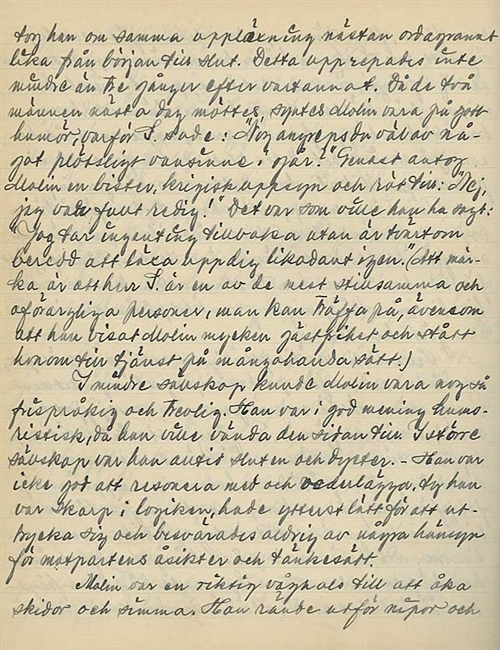 tog han om samma uppläxning nästan ordagrannt
lika från början till slut. Detta upprepades inte
mindre än tre gånger efter vartannat. Då de två
männen nästa dag möttes, syntes Molin vara på gott
humör, varför S. sade: "Nog angreps du väl av nå-
got plötsligt vansinne i går?" Genast antog
Molin en bister, krigisk uppsyn och röt till: "Nej,
jag var fullt redig!" Det var som ville han ha sagt:
"Jag tar ingenting tillbaka utan är tvärtom
beredd att läxa upp dig likadant igen." (Att mär-
ka är att herr S. är en av de mest stillsamma och
oförargliga personer, man kan träffa på, ävensom
att han visat Molin mycken gästfrihet och stått
honom till tjänst på mångahanda sätt.)
I mindre sällskap kunde Molin vara nog så
fråspråkig och trevlig. Han var i god mening humo-
ristisk, då han ville vända den sidan till. I större
sällskap var han alltid sluten och dyster. - Han var
icke god att resonera med och vederlägga, ty han
var skarp i logiken, hade ytterst lätt för att ut-
trycka sig och besvärades aldrig av några hänsyn
för motpartens åsikter och tänkesätt.
Molin var en riktig våghals till att åka
skidor och simma. Han rände utför nipor och